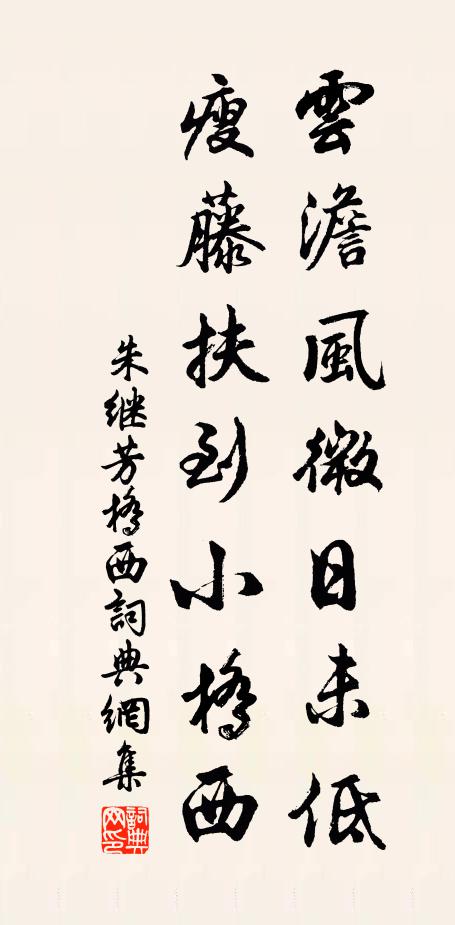 雲澹風微日未低
瘦藤扶到小橋西
朱继芳橋西詞典網集
詞典网印